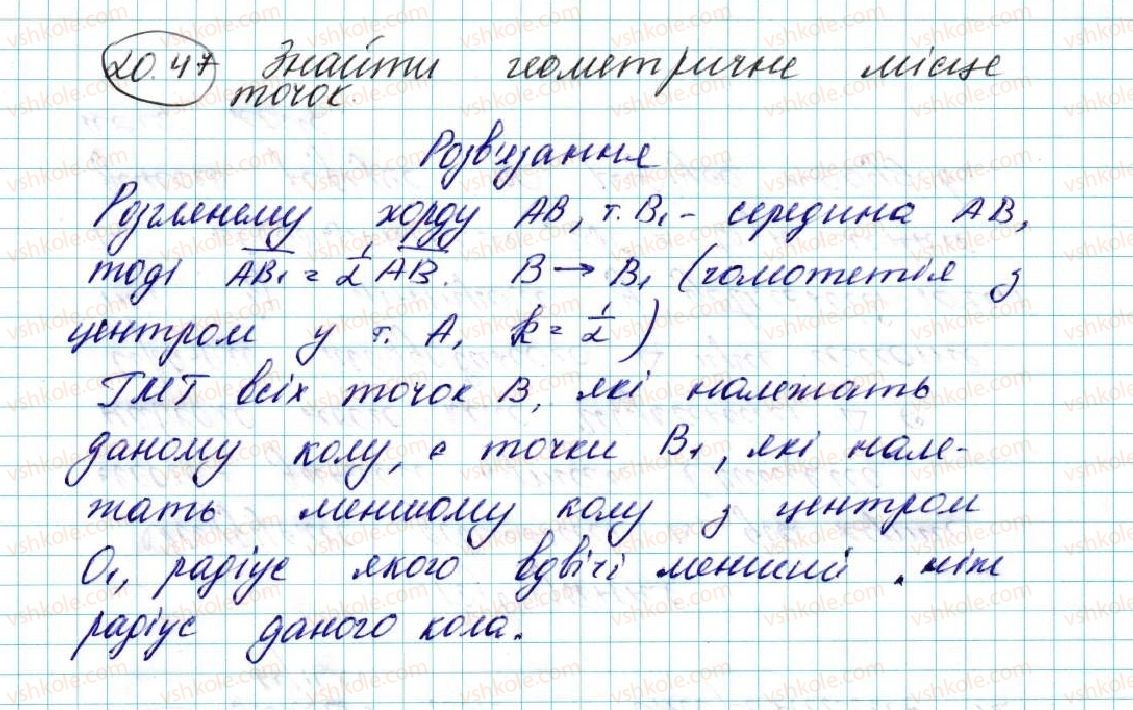 20.47 Знайти геометричне місце
точок.
Розв'язання
Розглянему хорду AB, т. B₁ - середина AB,
тоді AB₁ = 1/2 AB. B → B₁ (гомотетія з
центром у т. A, k = 1/2)
ГМТ всіх точок B, які належать
даному колу, є точки B₁, які нале-
жать меншому колу з центром
O₁, радіус якого вдвічі менший, ніж
радіус даного кола.